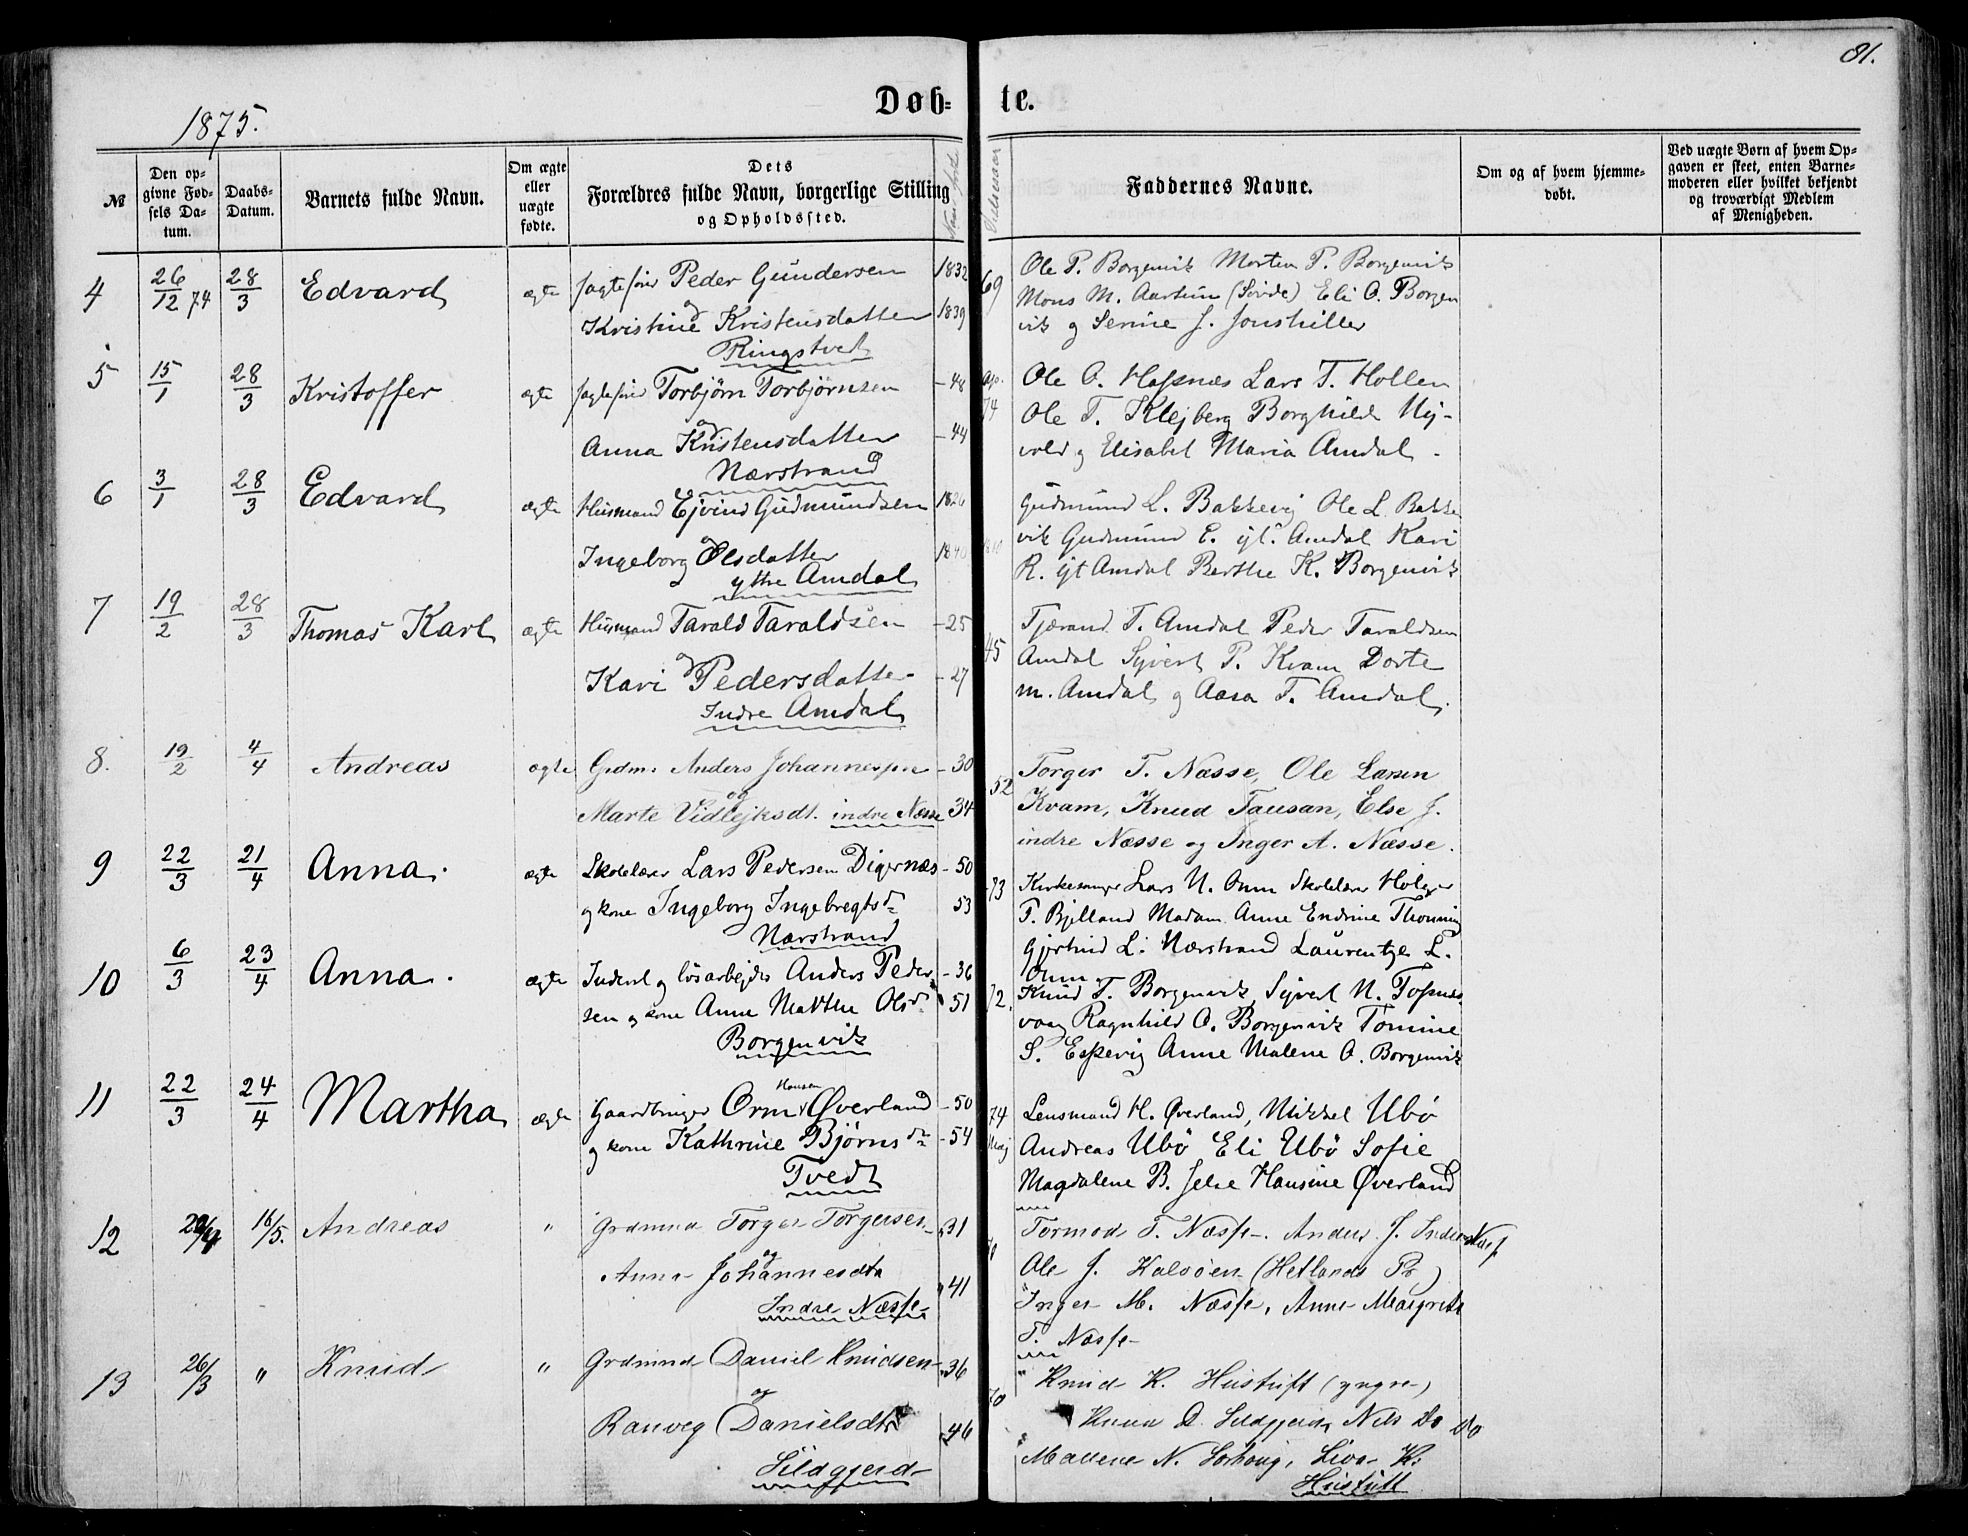 81.
Døb- te.
1875.
№
Den opgivne Fødsels Datum.
Daabs-Datum.
Barnets fulde Navn.
Om ægte eller uægte fødte.
Dets Forældres fulde Navn, borgerlige Stilling og Opholdssted.
Faddernes Navne.
Om og af hvem hjemmedøbt.
Ved uægte Børn af hvem Opgaven er skeet, enten Barnemoderen eller hvilket bekjendt og troværdigt Medlem af Menigheden.
4 26/12 74 28/3 Edvard ægte Jagtefører Peder Gundersen 1832
og Kristine Kristensdatter 1839
Ringstved
69 Ole P. Borgenvik Morten P. Borgenvik
Mons M. Aartun (Søvde) Eli O. Borgen
vik og Serine J. Jonshiller
5 15/1 28/3 Kristoffer ægte Jagtefører Torbjørn Torbjørnsen - 48
og Anna Kristensdatter - 44
Nærstrand
74 Ole O. Hasnæs Lars T. Hollen
Ole T. Klejberg Borghild Ny-
vold og Elisabet Maria Amdal.
6 3/1 28/3 Edvard ægte Husmand Ejvind Gudmundsen 1826
og Ingeborg Olsdatter 1840
ytre Amdal
Gudmund L. Bakkevig Ole L. Bakke
vik Gudmund E. yt. Amdal Kari
R. yt Amdal Berthe K. Borgenvik
7 19/2 28/3 Thomas Karl ægte Husmand Tarald Taraldsen - 25
og Kari Pedersdatter - 27
Indre Amdal
45 Tjærand T. Amdal Peder Taraldsen
Amdal Syvert P. Kvam Dorte
M. Amdal og Aasa T. Amdal.
8. 19/2 4/4 Andreas ægte Grdm. Anders Johannessen - 30
og Marte Vidlejksdt. indre Næsse - 34
52 Torger T. Næsse, Ole Larsen
Kvam, Knud Tausan, Else J.
indre Næsse og Inger A. Næsse.
9 22/3 21/4 Anna. ægte Skolelærer Lars Pedersen Digernæs - 50
og kone Ingeborg Ingebregtsdr 53
Nærstrand
73 Kirkesanger Lars N. Onm Skolelærer Holger
T. Bjelland Madam Anne Endrine Thonning
Gjertrud L. Nærstrand Laurentze L.
Onm.
10 6/3 23/4 Anna. ægte Inderst og løsarbejder Anders Peder - 36
sen og kone Anne Marthe Olsdr - 51
Borgenvik
72. Knud T. Borgenvik, Syvert N. Tosnes
vaag Ragnhild O. Borgenvik Tomine
S. Espevig Anne Malene O. Borgenvik
11 22/3 24/4 Martha ægte Gaardbruger Orm Hansen Øverland - 50
og kone Kathrine Bjørnsdr - 54
Tvedt
74 Lensmand H. Øverland, Mikkel Ubø
Andreas Ubø Eli Ubø Sofie
Magdalene B. Jelse Hansine Øverland
12 29/4 16/5. Andreas " Grdmnd Torger Torgersen " 31
og Anna Johannesdtr " 41
Indre Næsse
70 Tormod T. Næsse. Anders J. Indre Næss
Ole J. Kalvøen (Hetlands Pr)
Inger M. Næsse, Anne Margrete
T. Næsse
13 26/3 " Knud " Grdmnd Daniel Knudsen " 36
og Ranveg Danielsdtr " 46
Sildgjerd
70 Knud K. Hustuft (yngre)
Knud D. Sildgjerd, Nils Do Do
Mallene N. Sørhaug, Siva K.
Hustuft